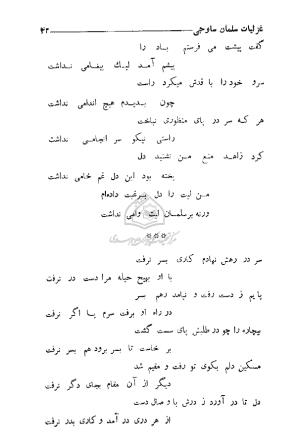 غزلیات سلمان ساوجی ۴۲
گفت پیشت می فرستم باد را
پیشم آمد لیک پیغامی نداشت
سرو خود را با قدش میکرد راست
چون بدیدم هیچ اندامی نداشت
هر که سر در پای منظوری نباخت
راستی نیکو سر انجامی نداشت
کرد زاهد منع من نشنید دل
پخته بود این دل غم خامی نداشت
من لبت را دل برغبت داده‌ام
ورنه بر سلمان لبت وامی نداشت
***
سر در رهش نهادم کاری بسر نرفت
با او بهیچ حیله مرا دست در نرفت
پایم ز دست رفت و نیامد رهم بسر
در راه او برفت سرم پا اگر نرفت
بیچاره را چو در طلبش پای سست گشت
بر خاست تا بسر برود هم بسر نرفت
مسکین دلم بکوی تو رفت و مقیم شد
دیگر از آن مقام بجای دگر نرفت
دل تا در آورد ز درش با وصال دست
از هر دری در آمد و کاری بدر نرفت